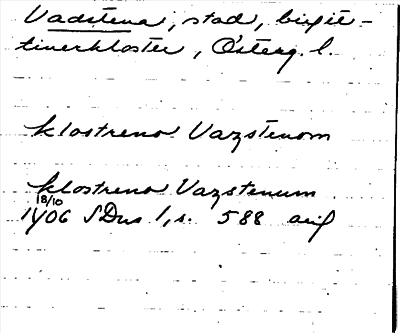 Vadstena, stad, birgit-
tinerkloster, Österg. l.
klostreno Vazstenom
klostreno Vazstenum
18/10
1406 SDns 1, s. 588 avs